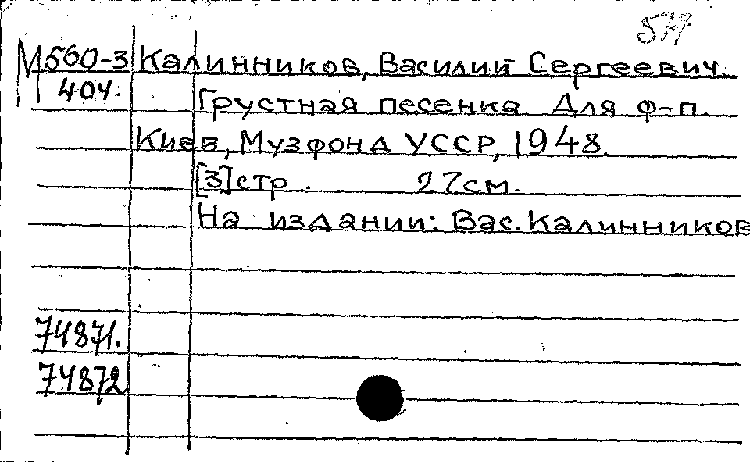 577
М560-3 Калинников, Василий Сергеевич.
404. Грустная песенка Для ф-п.
Киев, Музфонд УССР, 1948.
[3]стр. 27см.
На издании: Вас. Калинников
74871.
74872